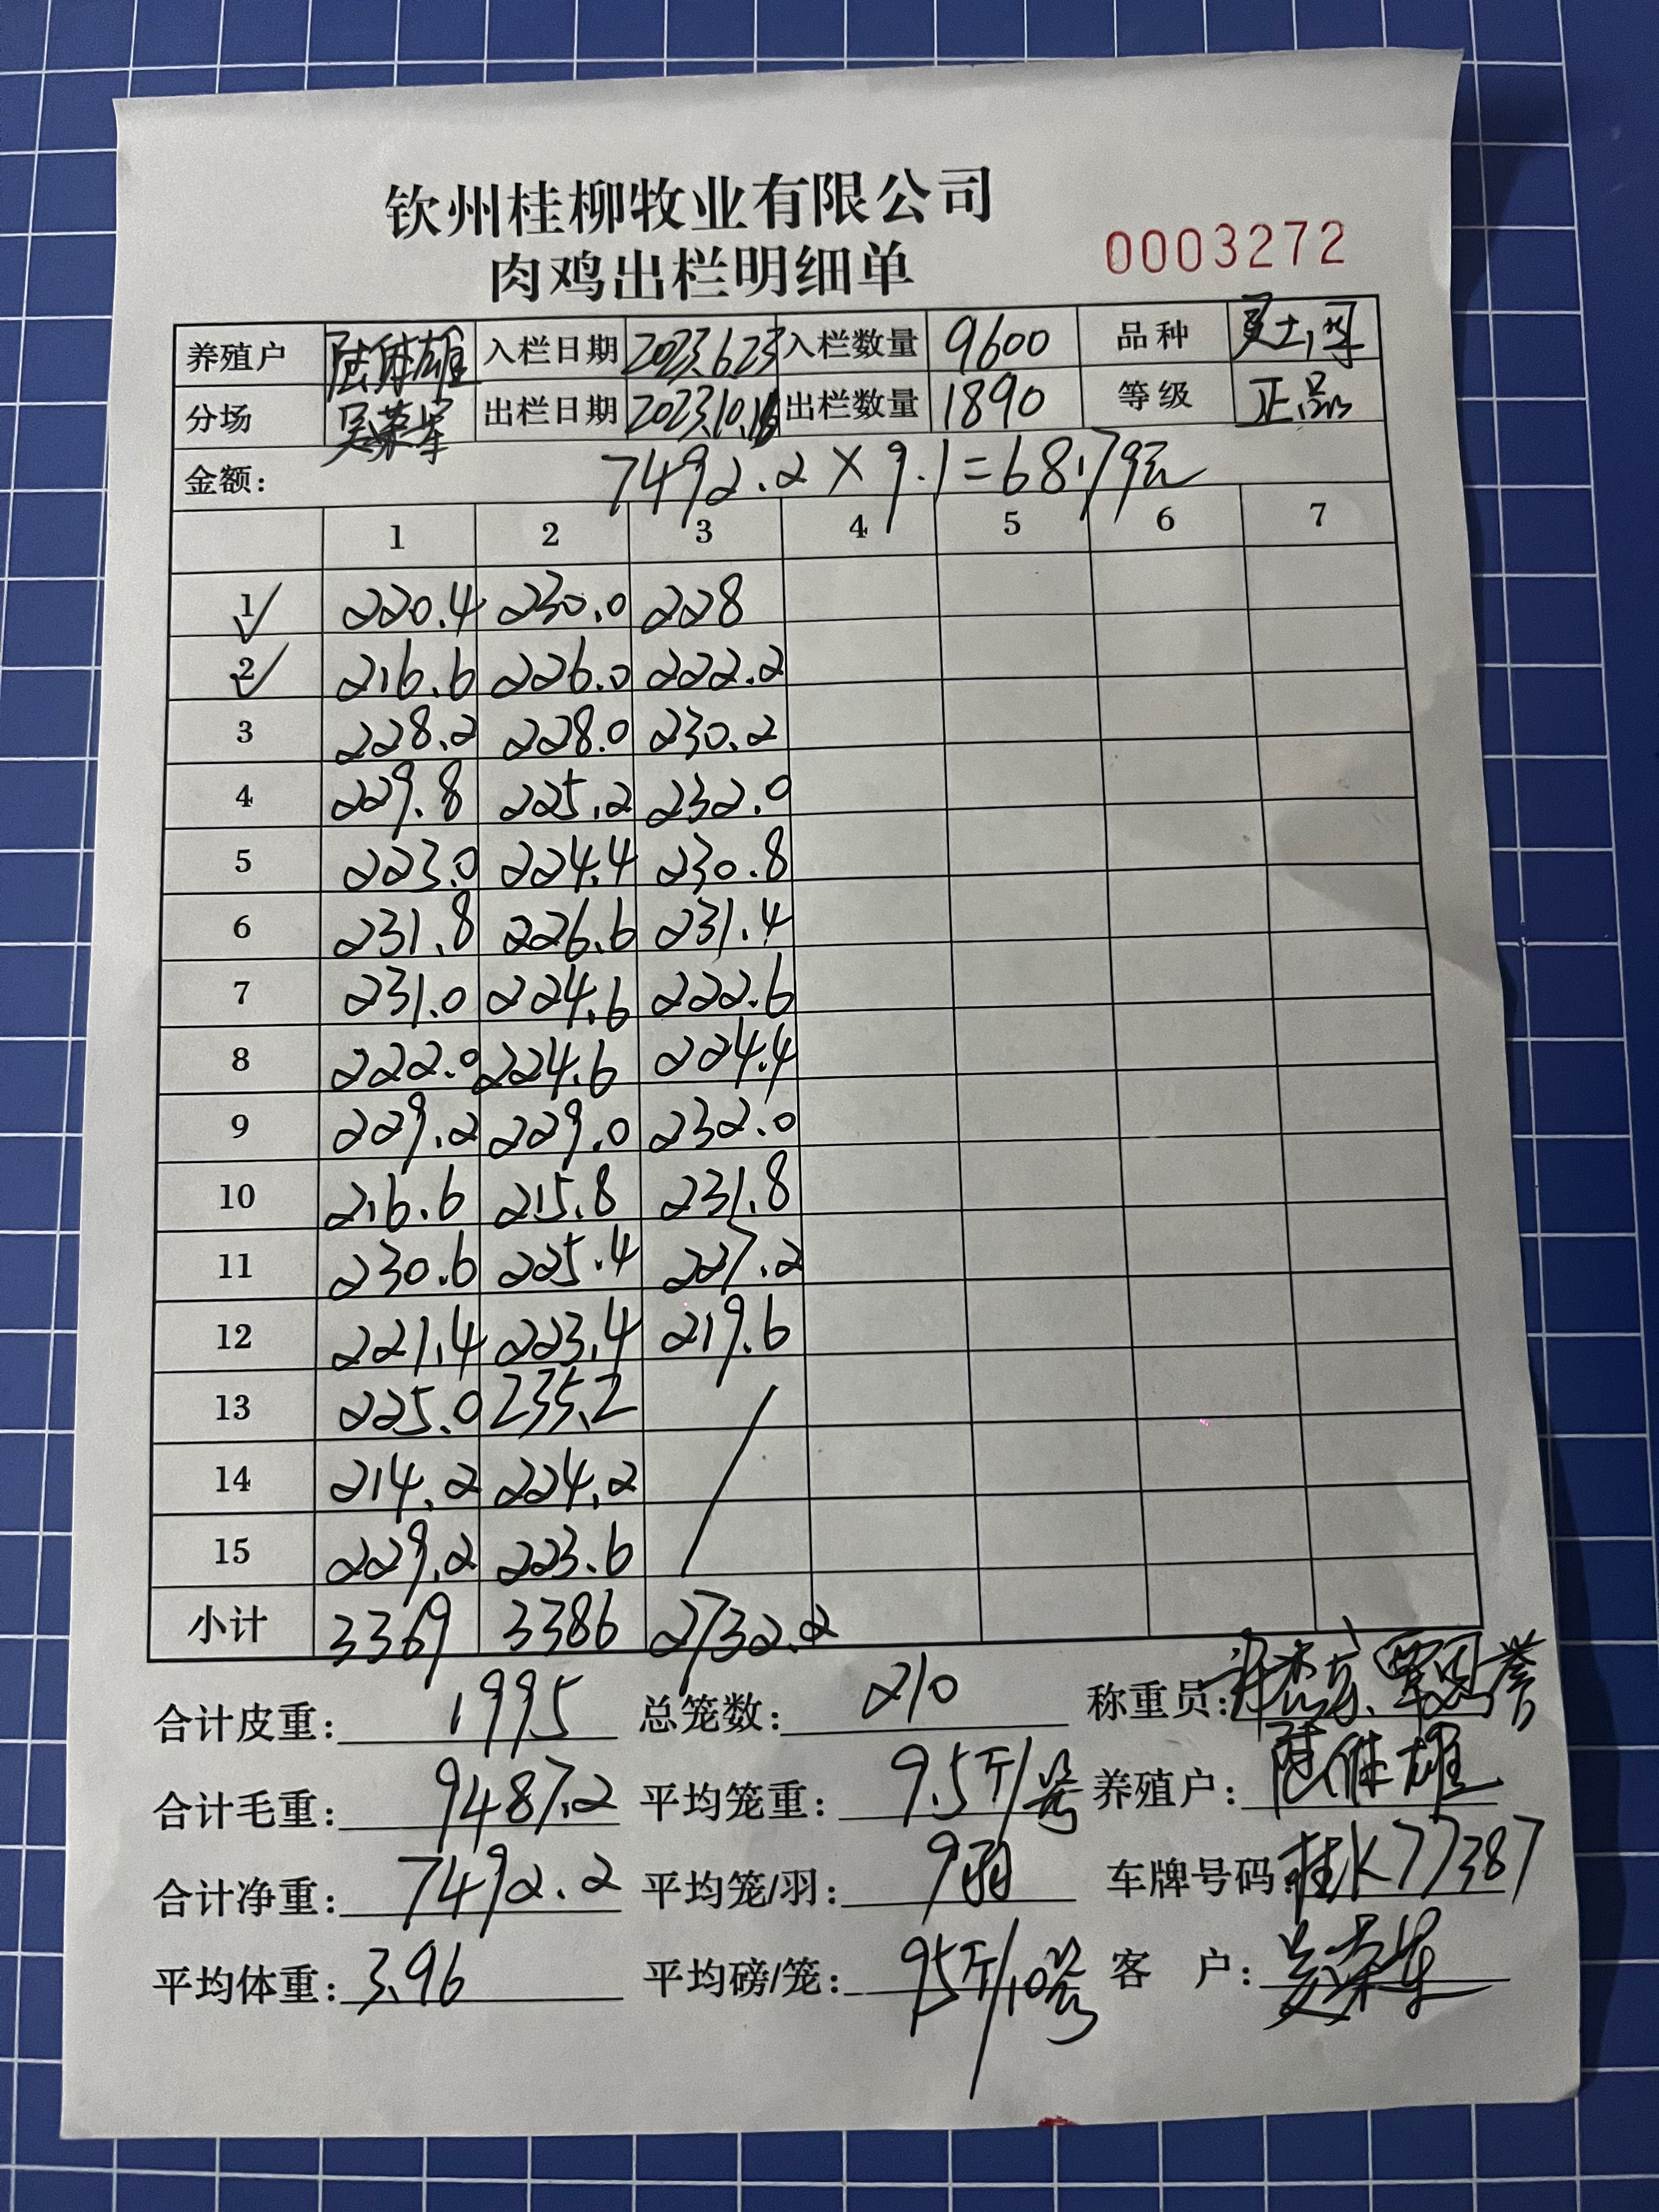 钦州桂柳牧业有限公司
肉鸡出栏明细单
0003272
养殖户 入栏日期 2023.6.23 入栏数量 9600 品种
分场 吴荣军 出栏日期 2023.10.16 出栏数量 1890 等级 正品
金额: 7492.2×9.1=68179元
1 2 3 4 5 6 7
1 220.4 230.0 228
2 216.6 226.0 222.2
3 228.2 228.0 230.2
4 229.8 225.2 232.0
5 223.0 224.4 230.8
6 231.8 226.6 231.4
7 231.0 224.6 222.6
8 222.0 224.6 224.4
9 229.2 229.0 232.0
10 216.6 215.8 231.8
11 230.6 225.4 227.2
12 221.4 223.4 219.6
13 225.0 235.2
14 214.2 224.2
15 229.2 223.6
小计 3369 3386 2732.2
合计皮重: 1995 总笼数: 210 称重员:
合计毛重: 9487.2 平均笼重: 9.5斤/ 养殖户:
合计净重: 7492.2 平均笼/羽: 9羽 车牌号码: 桂K77387
平均体重: 3.96 平均磅/笼: 95斤/10 客 户: 吴荣军